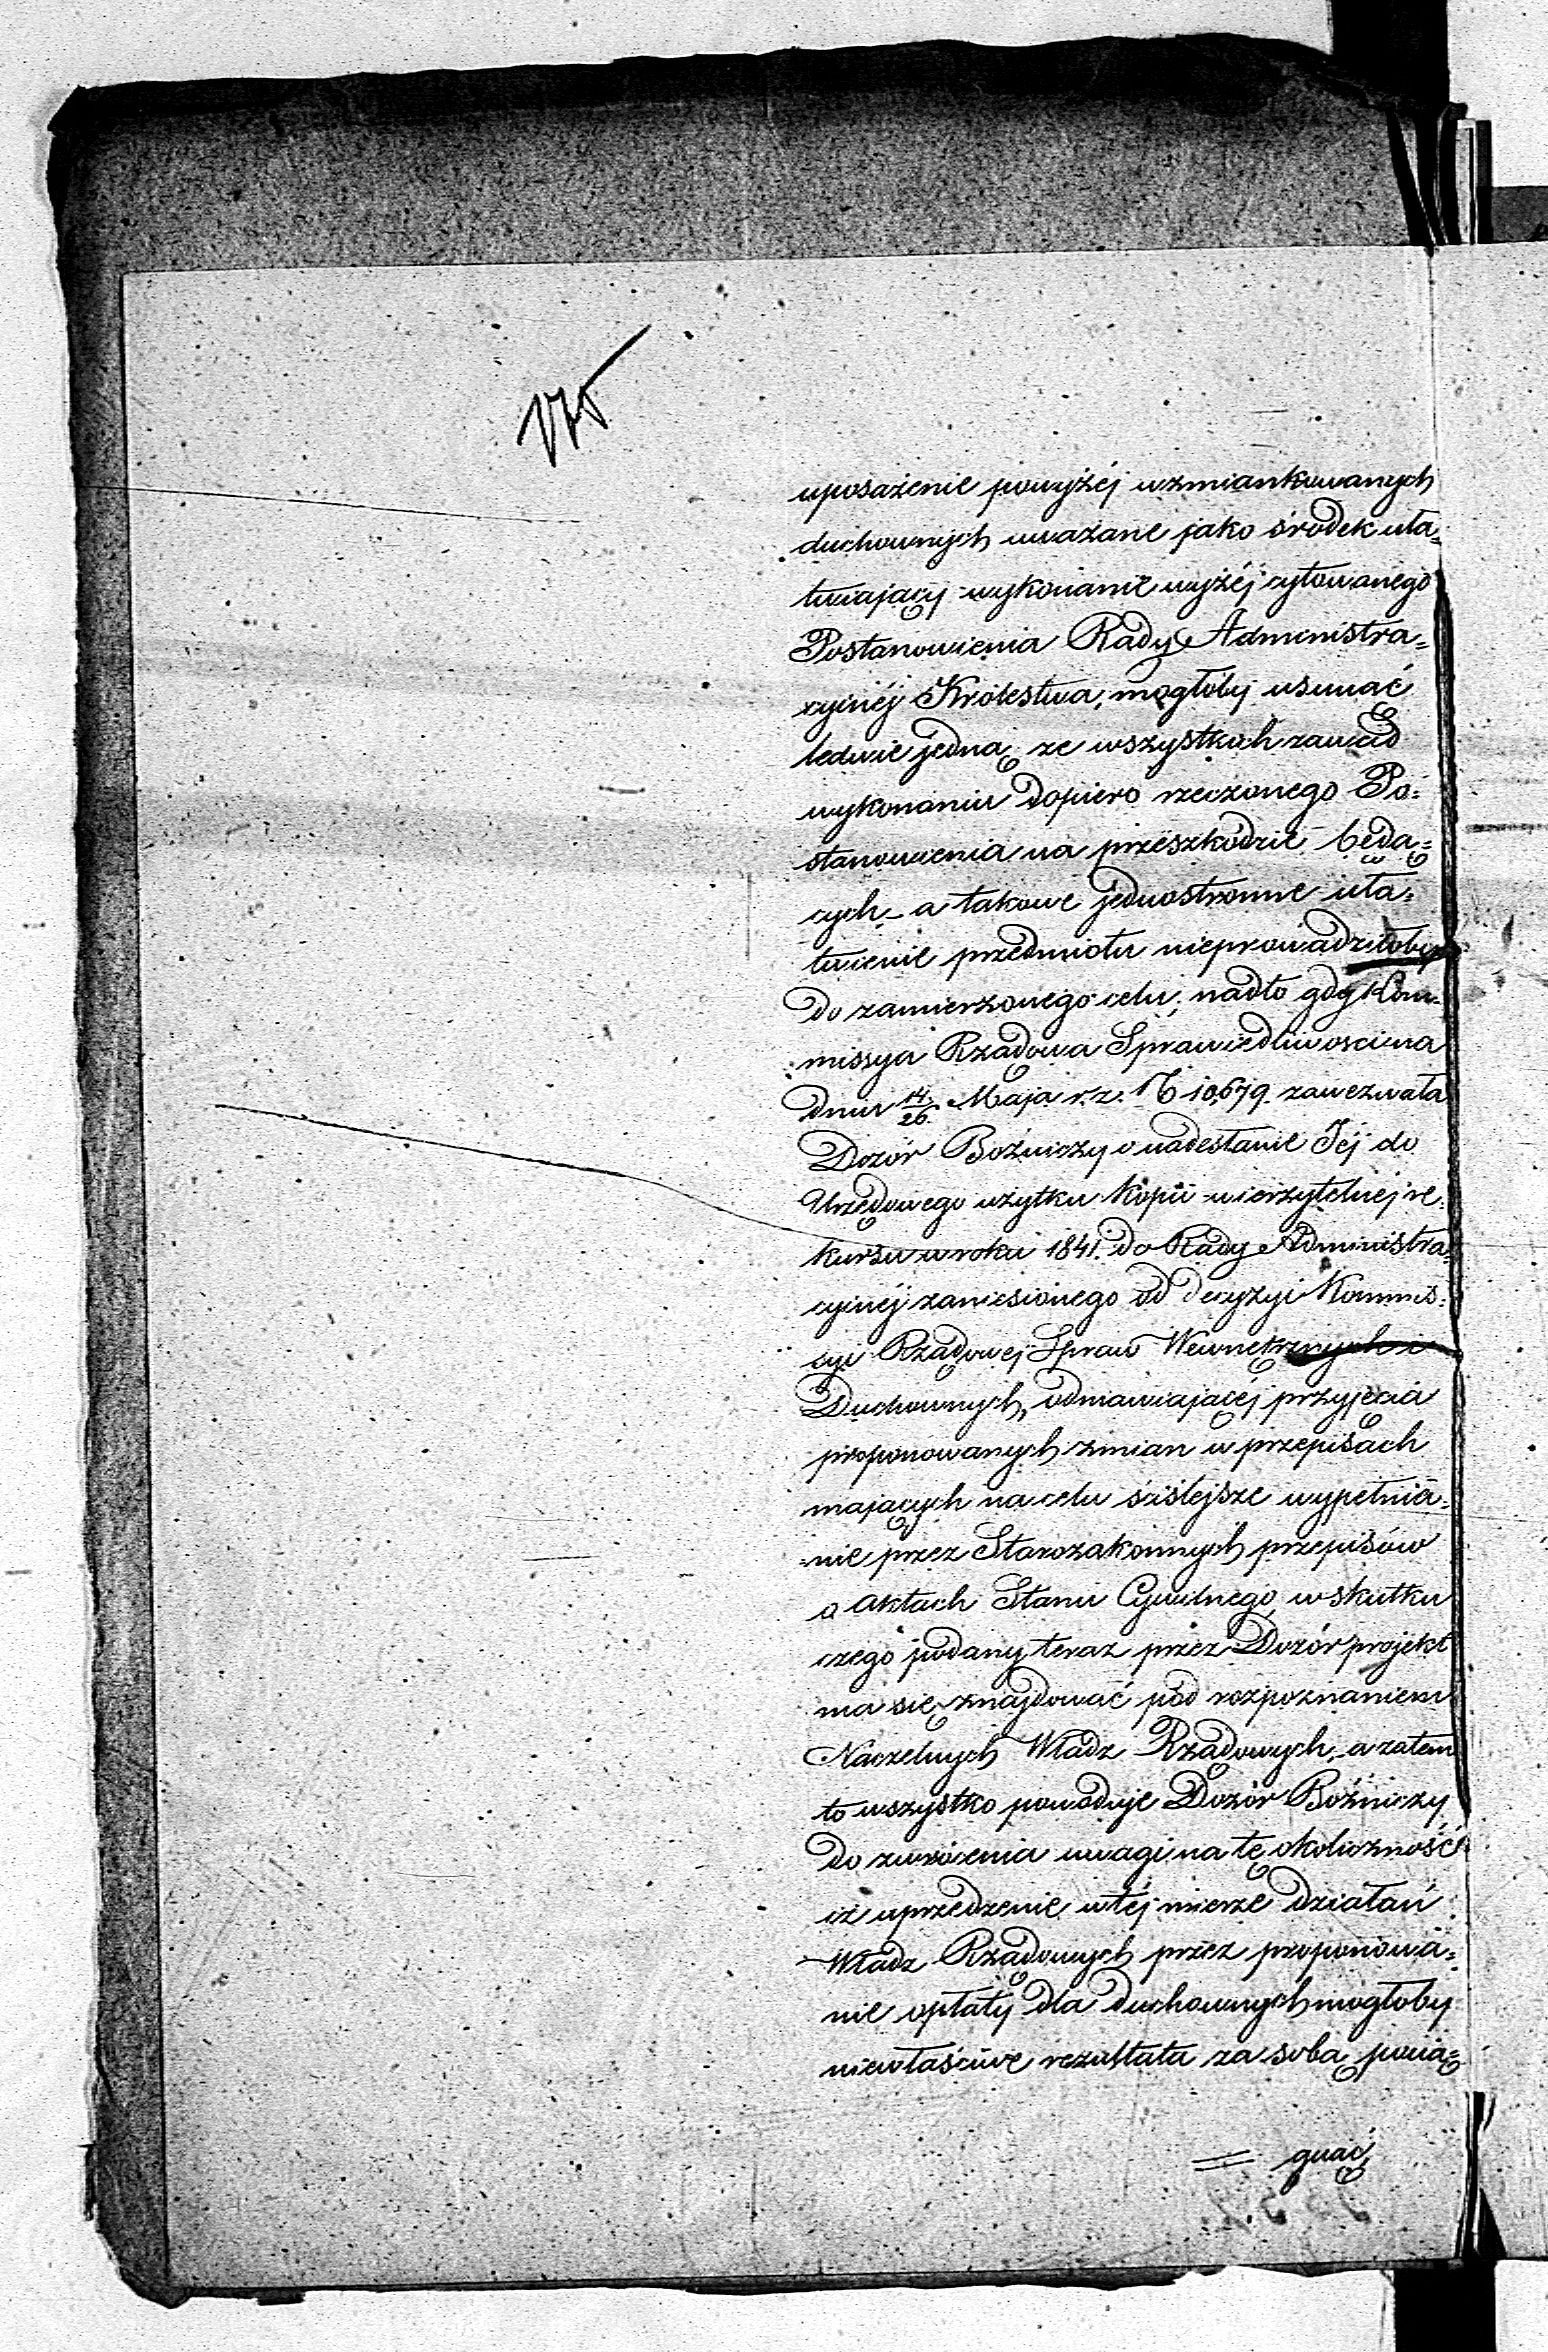 175
uposażenie powyżéj wzmiankowanych
duchownych uważane jako środek uła=
twiający wykonanie wyżéj cytowanego
Postanowienia Rady Administra=
cyinéj Królestwa, mogłoby usunąć
ledwie jedną ze wszystkich zawad
wykonaniu dopiero rzeczonego Po=
stanowienia na przeszkodzie będą=
cych – a takowe jednostronne uła=
twienie przedmiotu nieprowadziłoby
do zamierzonego celu; nadto gdy Kom=
missya Rządowa Sprawiedliwosci na
dniu 14/26 Maja r.z. N 10,679. zawezwała
Dozór Bożniczy o nadesłanie Jéj do
Urzędowego użytku kopii wierzytelnéj re=
kursu w roku 1841. do Rady Administra=
cyinéj zaniesionego od decyzyi Kommis=
syi Rządowej Spraw Wewnętrznych i
Duchownych, odmawiającéj przyjęcia
proponowanych zmian w przepisach
mających na celu ściślejsze wypełnia=
=nie przez Starozakonnych przepisów
o aktach Stanu Cywilnego, w skutku
czego podany teraz przez Dozór projekt
ma się znajdować pod rozpoznaniem
Naczelnych Władz Rządowych, a zatem
to wszystko powoduje Dozór Bóżniczy
do zwrócenia uwagi na tę okoliczność
iż uprzedzenie w téj mierze działań
Władz Rządowych przez proponowa=
nie opłaty dla duchownych mogłoby
niewłaściwe rezultata za sobą pocią=
= gnąć